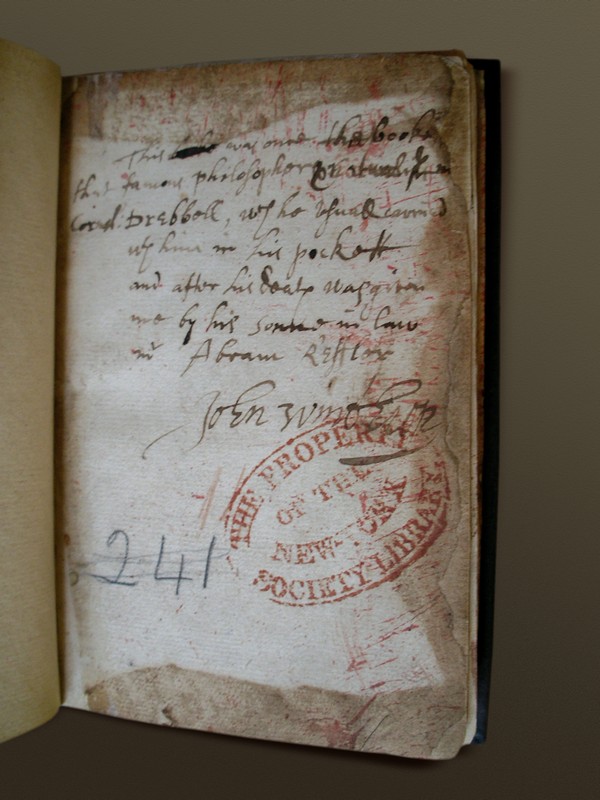 This was once the booke
that famous philosopher & naturalist
Cornel: Drebbell, wch he usually carried
wth him in his pockett
and after his death was given
me by his sonne in law
mr Abram Keffler
John Winthrop
THE PROPERTY
OF THE
NEW-YORK
SOCIETY LIBRARY.
241